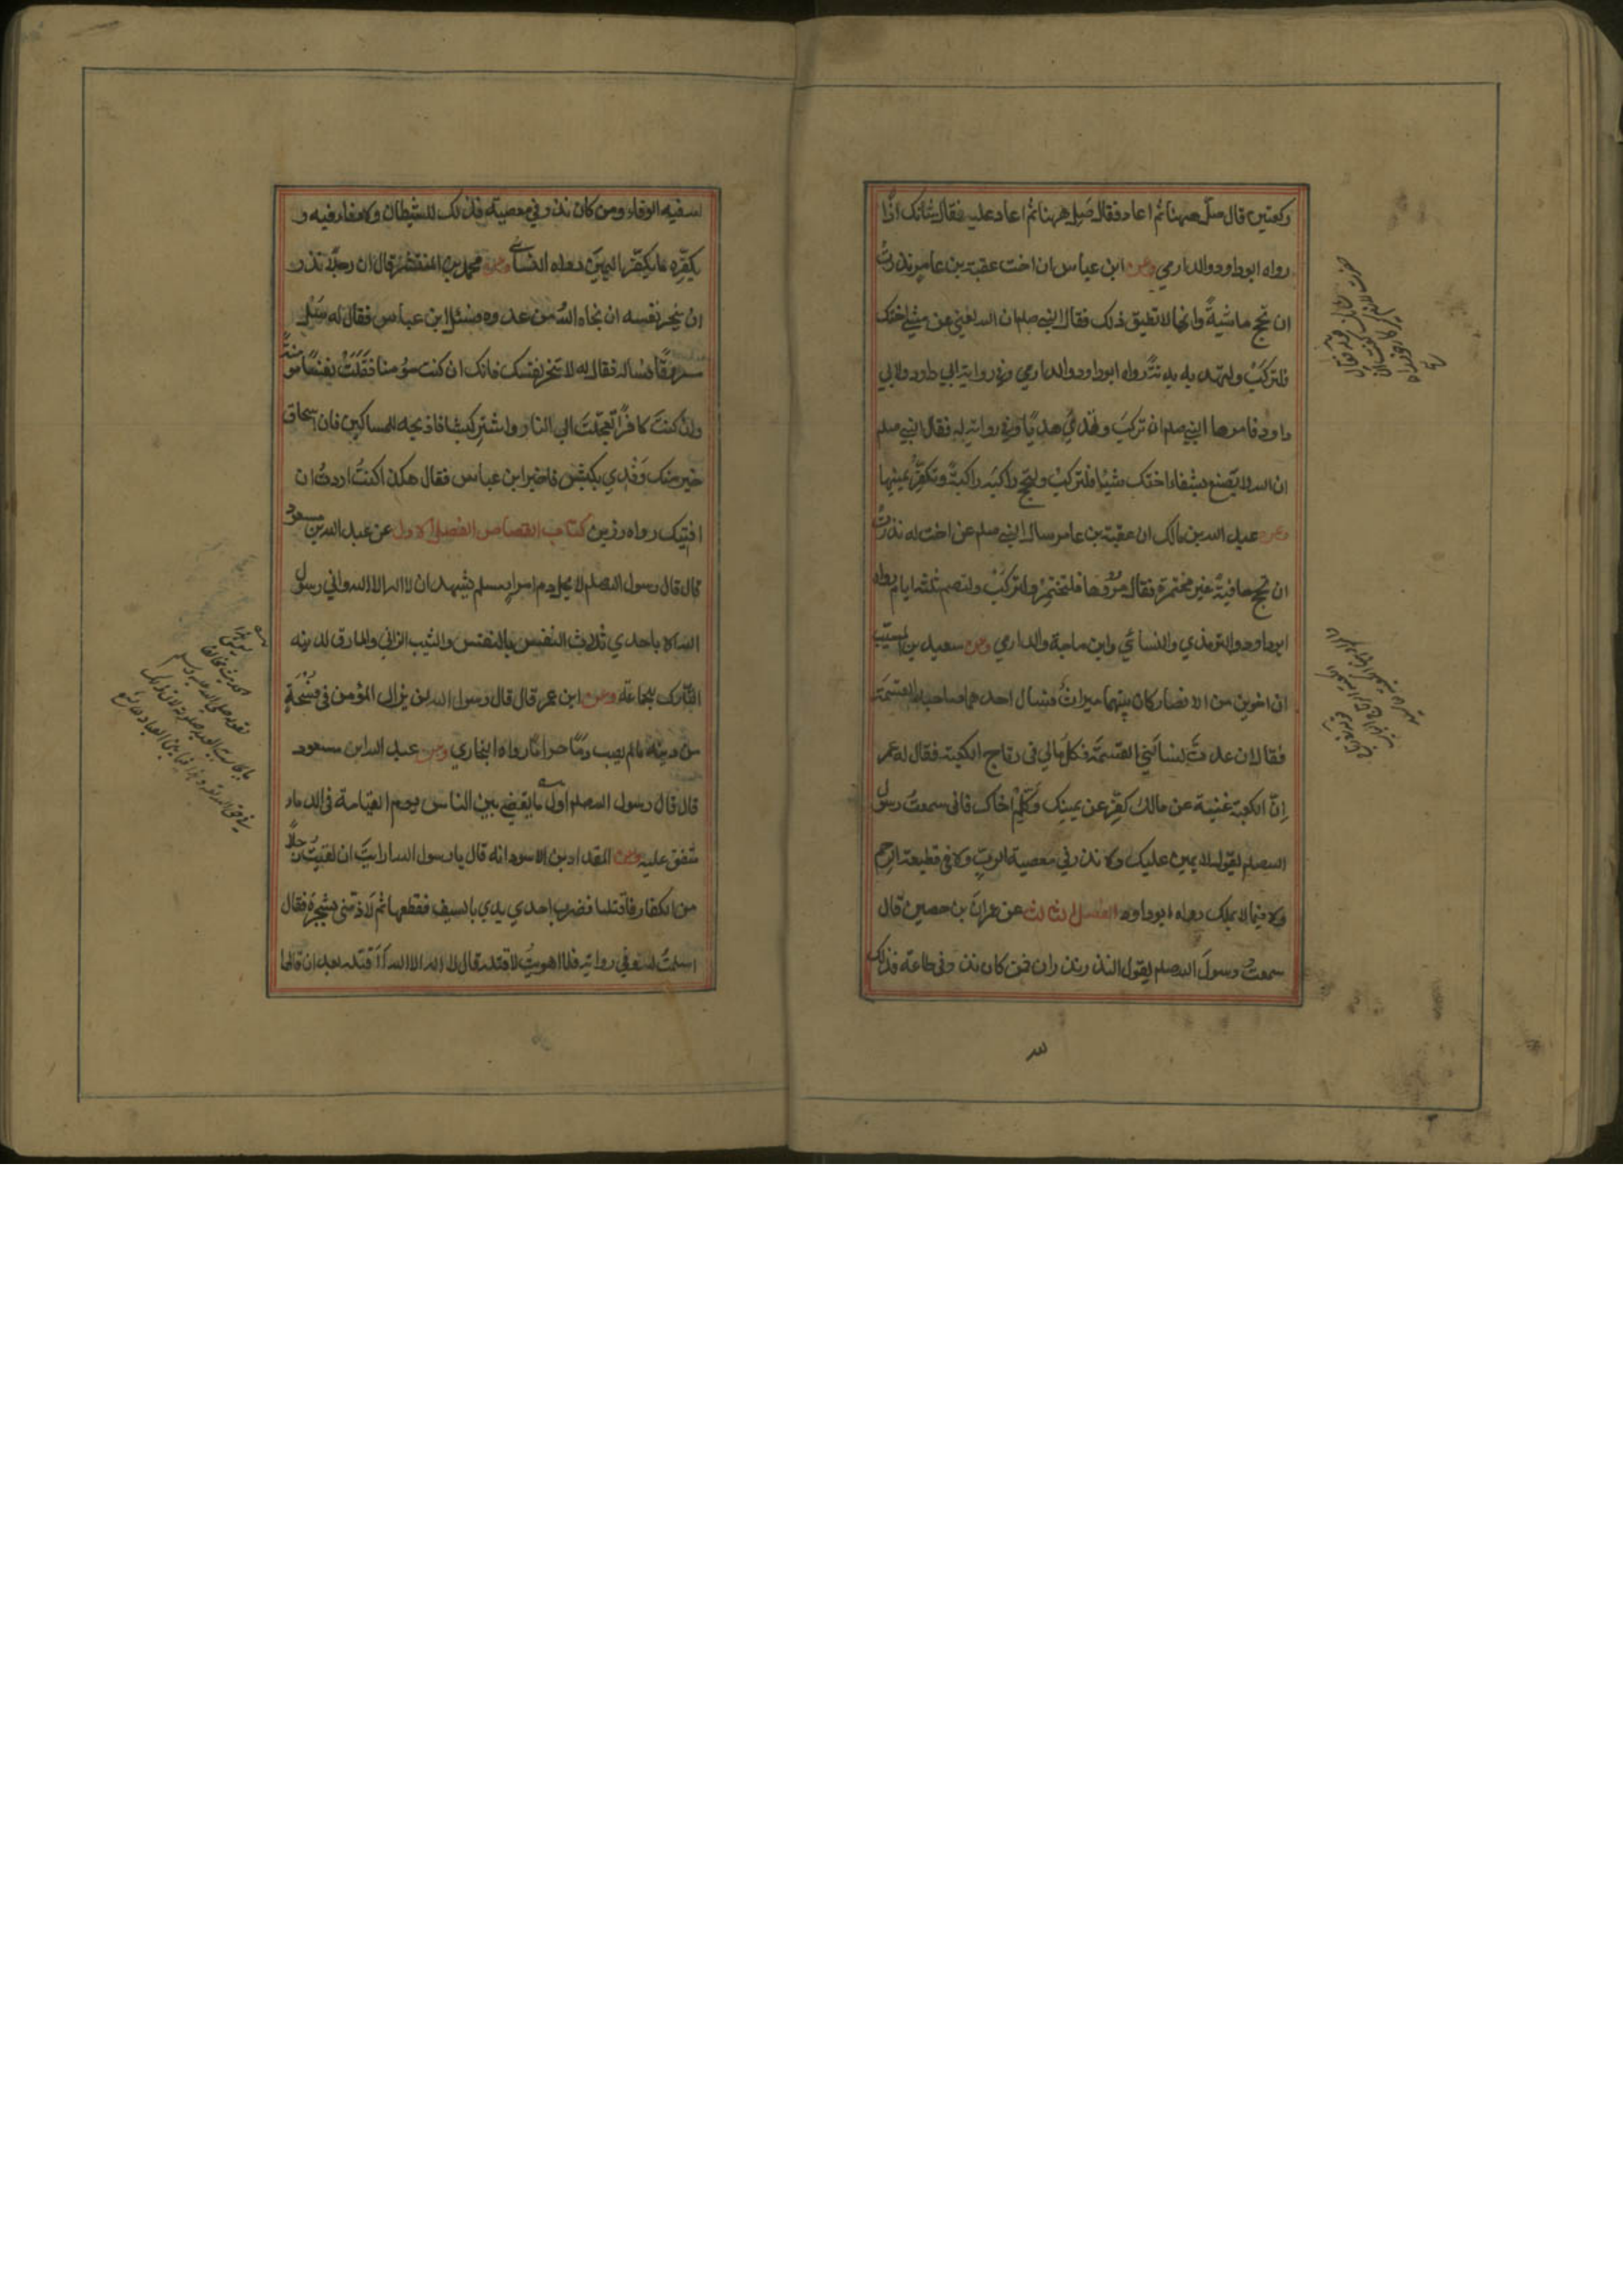 ركعتين قال صل ههنا ثم اعاد فقال صل ههنا ثم اعاد عليه فقال شانك اذًا
رواه ابوداود والدارمي وعن ابن عباس ان اخت عقبة بن عامر نذرت
ان تحج ماشيةً وانها لا تطيق ذلك فقال النبي صلم ان الله لغني عن مشي اختك
فلتركب ولتهد بدنة رواه ابوداود والدارمي وفي رواية لابي داود ولابي
داود فامرها النبي صلم ان تركب وتهدي هديًا وفي رواية له فقال النبي صلم
ان الله لا يصنع بشقاء اختك شيئا فلتركب ولتحج راكبةً وتكفر يمينها
وعن عبد الله بن مالك ان عقبة بن عامر سال النبي صلم عن اخت له نذرت
ان تحج حافيةً غير مختمرة فقال مروها فلتختمر ولتركب ولتصم ثلثة ايام رواه
ابوداود والترمذي والنسائي وابن ماجة والدارمي وعن سعيد بن المسيب
ان اخوين من الانصار كان بينهما ميراث فسال احدهما صاحبه القسمة
فقال ان عدت تسالني القسمة فكل مالي في رتاج الكعبة فقال له عمر
اِنّ الكعبة غنية عن مالك كفر عن يمينك وكلم اخاك فاني سمعت رسول
الله صلم يقول لا يمين عليك ولا نذر في معصية الرب ولا في قطيعة الرحم
ولا فيما لا يملك رواه ابوداود الفصل الثالث عن عمران بن حصين قال
سمعت رسول الله صلم يقول النذر نذران فمن كان نذر في طاعة فذلك
لله فيه الوفاء ومن كان نذر في معصية فذلك للشيطان ولا وفاء فيه و
يكفره ما يكفر اليمين رواه النسائي وعن محمد بن المنتشر قال ان رجلا نذر
ان ينحر نفسه ان نجاه الله من عدوه فسئل ابن عباس فقال له سل
مسروقًا فساله فقال له لا تنحر نفسك فانك ان كنت مؤمنا قتلت نفسًا مؤمنةً
وان كنت كافرًا تعجلت الي النار واشتر كبشا فاذبحه للمساكين فان اسحاق
خير منك وفدي بكبش فاخبر ابن عباس فقال هكذا كنت اردت ان
افتيك رواه رزين كتاب القصاص الفصل الاول عن عبد الله بن مسعود
قال قال رسول الله صلم لا يحل دم امرإ مسلم يشهد ان لا اله الا الله واني رسول
الله الا باحدي ثلاث النفس بالنفس والثيب الزاني والمارق لدينه
التارك للجماعة وعن ابن عمر قال قال رسول الله لن يزال المؤمن في فسحة
من دينه ما لم يصب دمًا حرامًا رواه البخاري وعن عبد الله بن مسعود
قال قال رسول الله صلم اول ما يقضي بين الناس يوم القيامة في الدماء
متفق عليه وعن المقداد بن الاسود انه قال يا رسول الله ارايت ان لقيت رجلاً
من الكفار فاقتتلنا فضرب احدي يدي بالسيف فقطعها ثم لاذ مني بشجرة فقال
اسلمت لله وفي رواية فلما اهويت لاقتله قال لا اله الا الله أاقتله بعد ان قالها